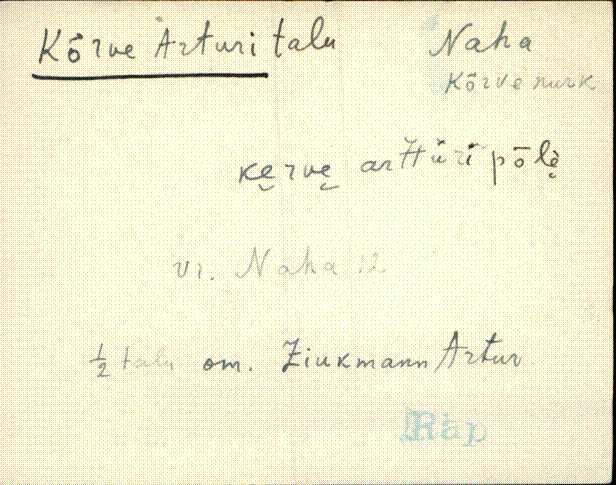 Kõrve Arturi talu Naha
Kõrve nurk
ke̮rve̮ arttüri pōlè̮
vr. Naha 12
½ talu om. Ziukmann Artur
Räp